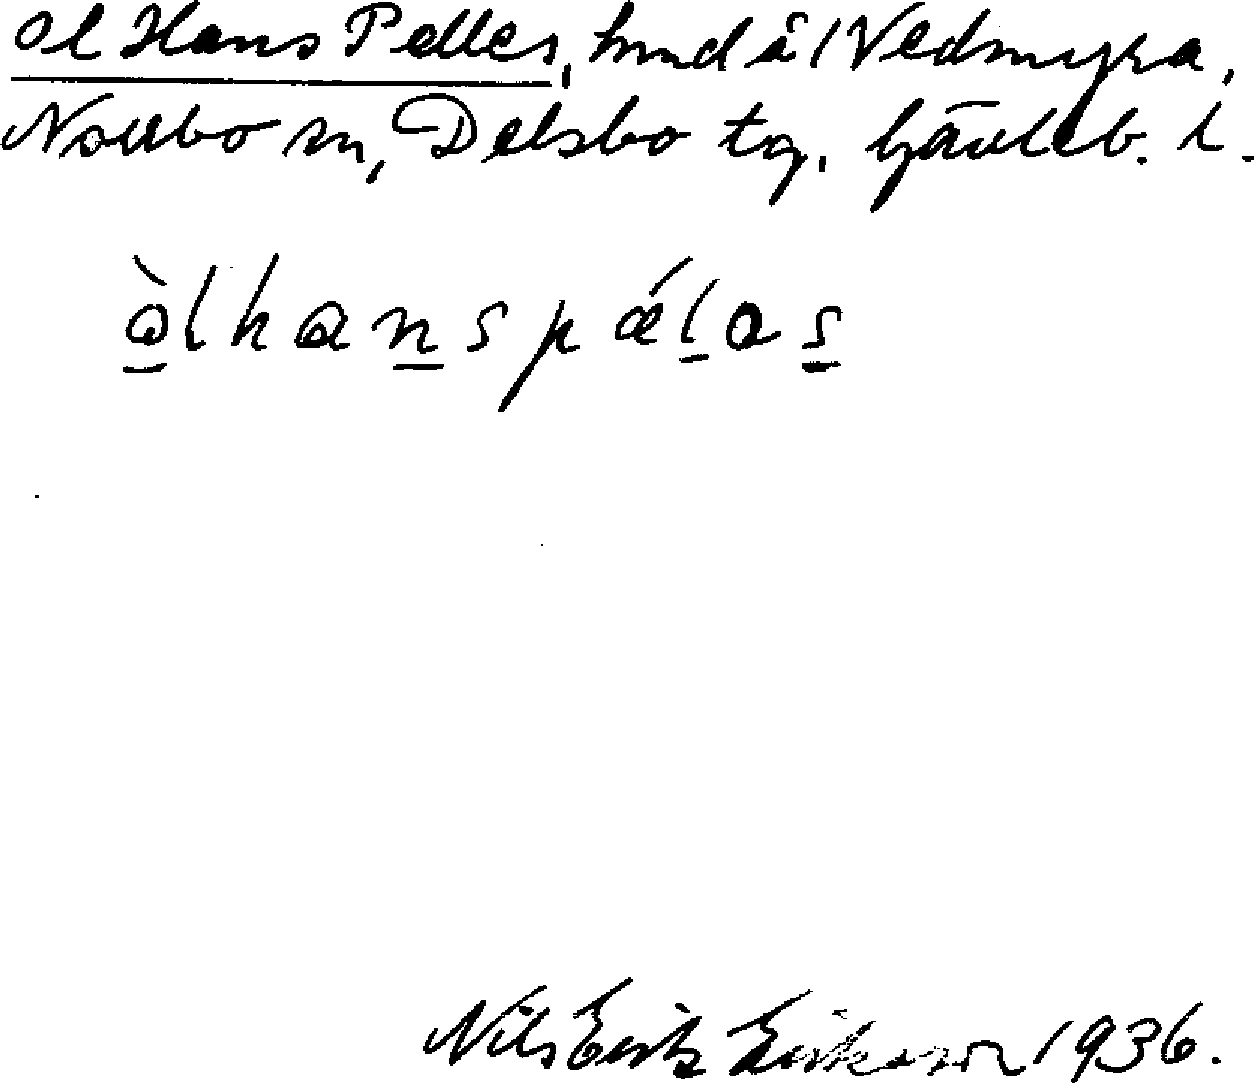 Ol Hans Pelles, hmd å 1 Vedmyra,
Norrbo sn, Delsbo tg. Gävleb. l.
òlhanspǽlas
Nils Erik Eriksson 1936.